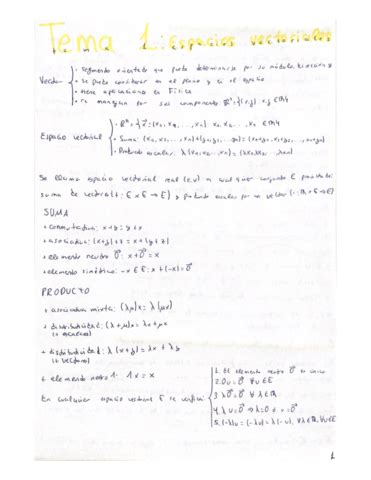 Tema 1: Espacios vectoriales
Vector
• segmento orientado que puede determinarse por su módulo, dirección y
• se puede considerar en el plano y en el espacio
• tiene aplicaciones en Física
• se manejan por sus componentes: R² = {(x,y): x,y ∈ R}
Espacio vectorial
• Suma: (x₁, x₂, ..., xₙ) + (y₁, y₂, ..., yₙ) = (x₁+y₁, x₂+y₂, ..., xₙ+yₙ)
• Producto escalar: λ(x₁, x₂, ..., xₙ) = (λx₁, λx₂, ..., λxₙ)
Se llama espacio vectorial real (e.v) a cualquier conjunto E
suma de vectores (+: E × E → E) y producto escalar por un vector (·: R × E → E)
SUMA
• conmutativa: x+y = y+x
• asociativa: (x+y)+z = x+(y+z)
• elemento neutro 0⃗: x+0⃗ = x
• elemento simétrico: -x ∈ E: x+(-x) = 0⃗
PRODUCTO
• asociativa mixta: (λμ)x = λ(μx)
• distributividad: (λ+μ)x = λx+μx
(+ escalares)
• distributividad: λ(x+y) = λx+λy
(+ vectores)
• elemento neutro 1: 1x = x
En cualquier espacio vectorial E se verifica
1. El elemento neutro 0⃗ es único
2. 0u = 0⃗ ∀u∈E
3. λ0⃗ = 0⃗ ∀λ∈R
4. λu = 0⃗ → λ=0 o u=0⃗
5. (-λ)u = (-λu) = λ(-u), ∀λ∈R, ∀u∈E
1